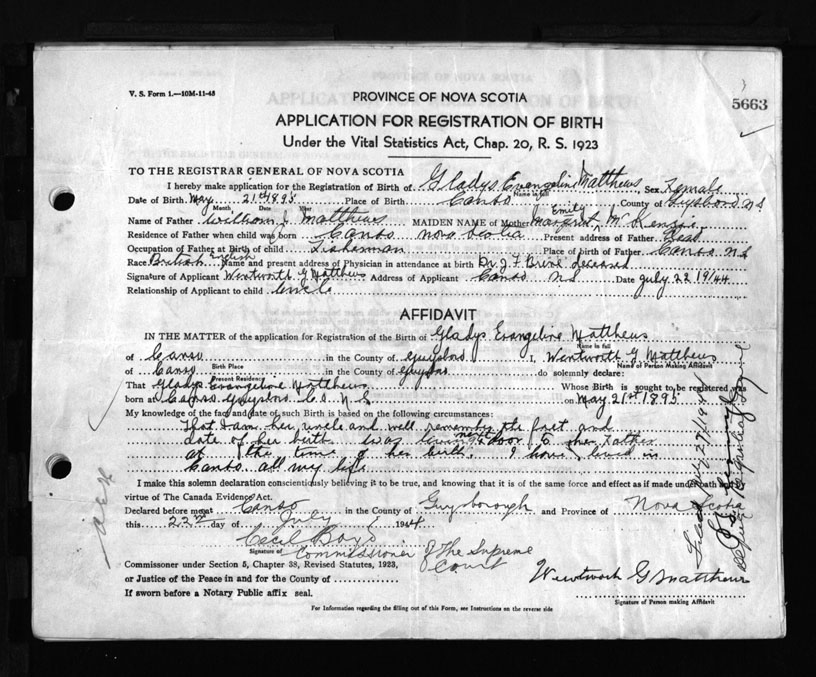 V. S. Form 1.—10M-11-43
5663
PROVINCE OF NOVA SCOTIA
APPLICATION FOR REGISTRATION OF BIRTH
Under the Vital Statistics Act, Chap. 20, R. S. 1923
TO THE REGISTRAR GENERAL OF NOVA SCOTIA
I hereby make application for the Registration of Birth of Gladys Evangeline Matthews, Sex Female
Name in full
Date of Birth May 21st 1895 Place of Birth Canso County of Guysboro N S
Month Date Year
Name of Father William J Matthews MAIDEN NAME of Mother Margaret Emily McKenzie
Residence of Father when child was born Canso Nova Scotia Present address of Father Dead
Occupation of Father at Birth of child Fisherman Place of birth of Father Canso N S
Race British English Name and present address of Physician in attendance at birth Dr J F deceased
Signature of Applicant Wentworth G Matthews Address of Applicant Canso N S Date July 22 1944
Relationship of Applicant to child Uncle
AFFIDAVIT
IN THE MATTER of the application for Registration of the Birth of Gladys Evangeline Matthews
Name in full
of Canso in the County of Guysboro I, Wentworth G Matthews
Birth Place Name of Person Making Affidavit
of Canso in the County of Guysboro do solemnly declare:
Present Residence
That Gladys Evangeline Matthews Whose Birth is sought to be registered was
born at Canso Guysboro Co N. S on May 21st 1895
My knowledge of the fact and date of such Birth is based on the following circumstances:
That I am her uncle and well remember the fact and
date of her birth was living next door to her Father
at the time of her birth. I have lived in
Canso all my life
I make this solemn declaration conscientiously believing it to be true, and knowing that it is of the same force and effect as if made under oath and by
virtue of The Canada Evidence Act.
Declared before me at Canso in the County of Guysborough and Province of Nova Scotia
this 22nd day of July 1944
Cecil
Signature of Commissioner of The Supreme
Court
Commissioner under Section 5, Chapter 38, Revised Statutes, 1923,
or Justice of the Peace in and for the County of
If sworn before a Notary Public affix seal.
Wentworth G Matthews
Signature of Person making Affidavit
For Information regarding the filling out of this Form, see Instructions on the reverse side